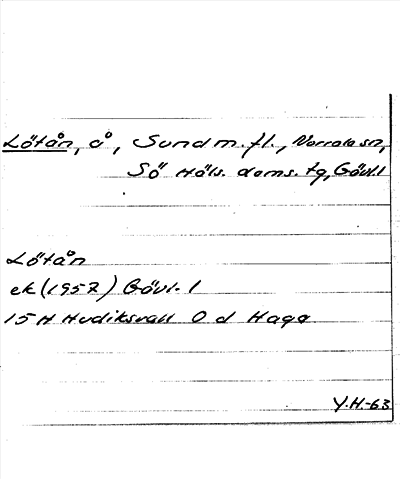 Lötån, å, Sund m.fl., Norrala sn,
Sö Häls. doms. tg, Gävl.l
Lötån
ek (1957) Gävl. l
15 H Hudiksvall 0 d Haga
Y.H.-63